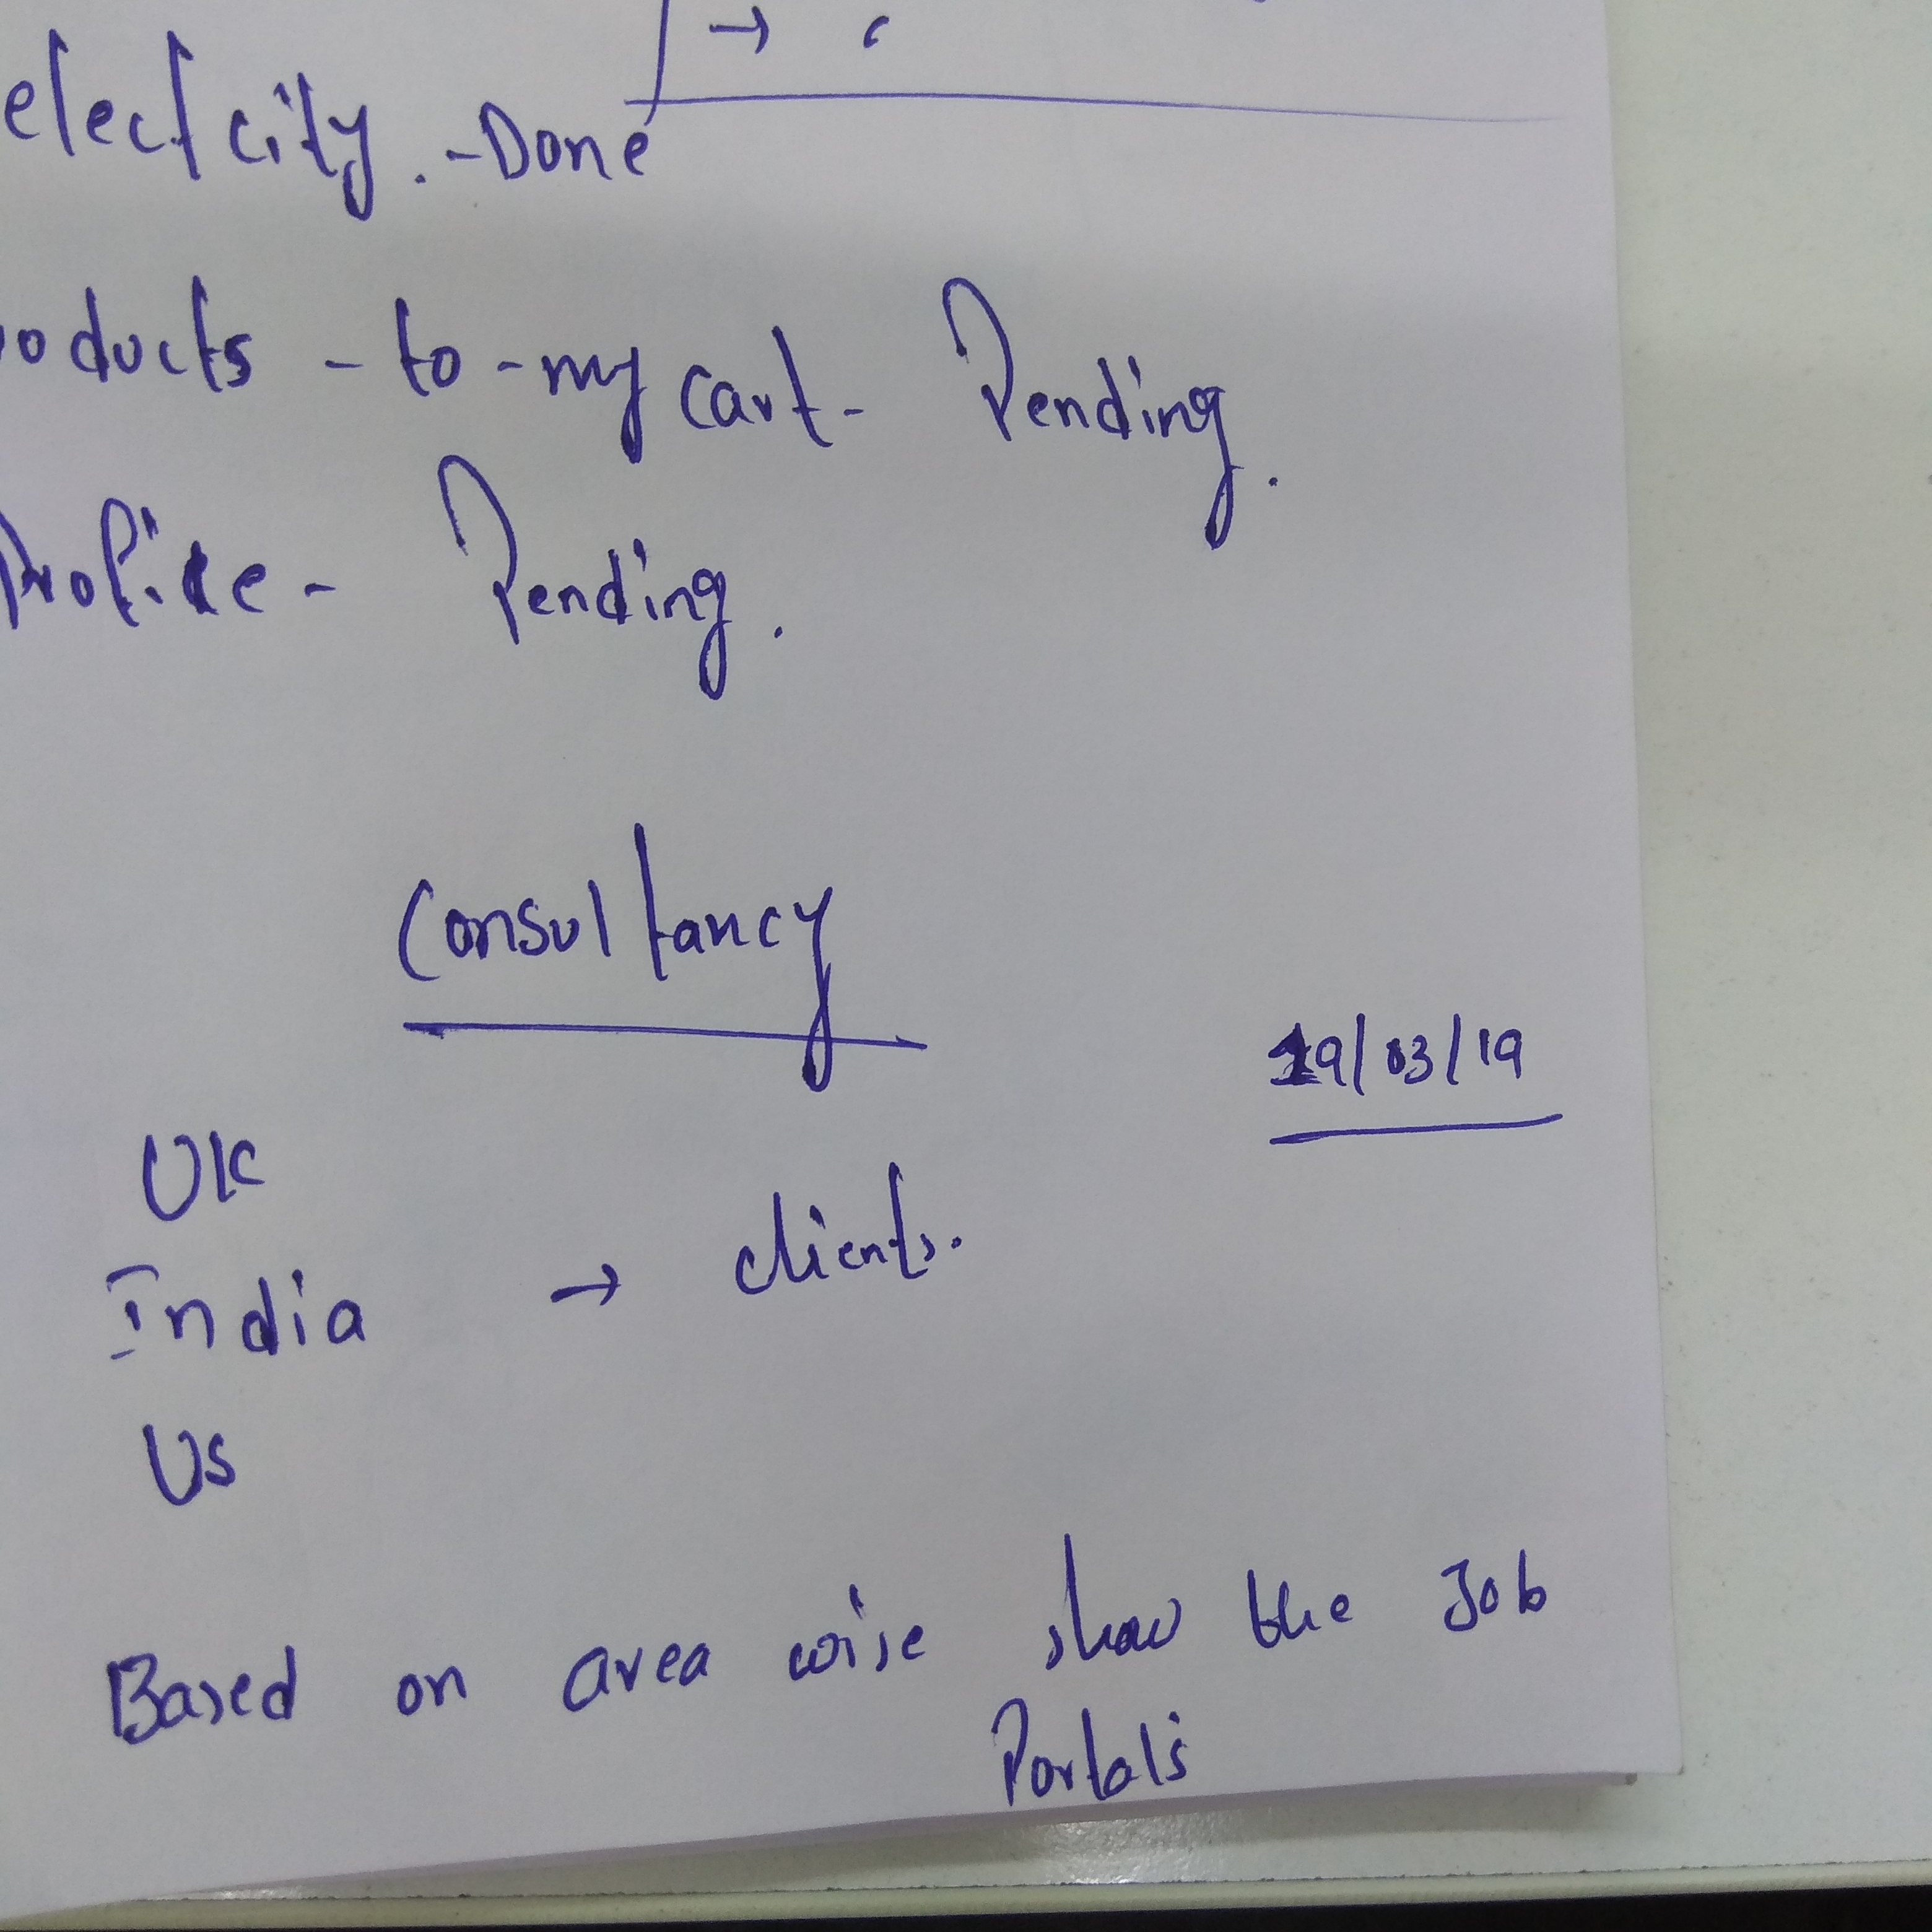 →
electcity. - Done
oducts - to - my cart - Pending.
Profile - Pending.
Consultancy
19/03/19
UK
India → clients.
US
Based on area wise show the Job
Portals